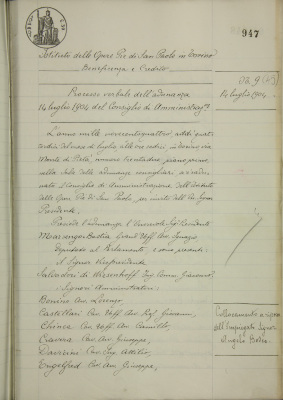 947
Istituto delle Opere Pie di San Paolo in Torino
Beneficenza e Credito
N. 9
14 luglio 1904
Processo verbale dell'adunanza
14 luglio 1904 del Consiglio di Amministraz.
L'anno mille novecentoquattro, addì quat-
tordici del mese di luglio, alle ore sedici, in Torino, via
Monte di Pietà, numero trentadue, piano primo,
nella Sala delle adunanze consigliari, si è radu-
nato il Consiglio di Amministrazione dell'Istituto
delle Opere Pie di San Paolo, per invito dell'Ill. Signor
Presidente.
Presiede l'adunanza l'Onorevole Sig. Presidente
Deputato al Parlamento e sono presenti:
il Signor Vicepresidente
Salvadori di Wiesenhoff Ing. Comm. Giacomo,
i Signori Amministratori:
Bonino Avv. Lorenzo,
Castellari Cav. Uff. Avv. Giovanni,
Chiesa Cav. Uff. Avv. Camillo,
Craveri Cav. Avv. Giuseppe,
Davicini Cav. Ing. Attilio,
Engelfred Cav. Avv. Giuseppe,
Collocamento a riposo
dell'Impiegato Signor
Angelo